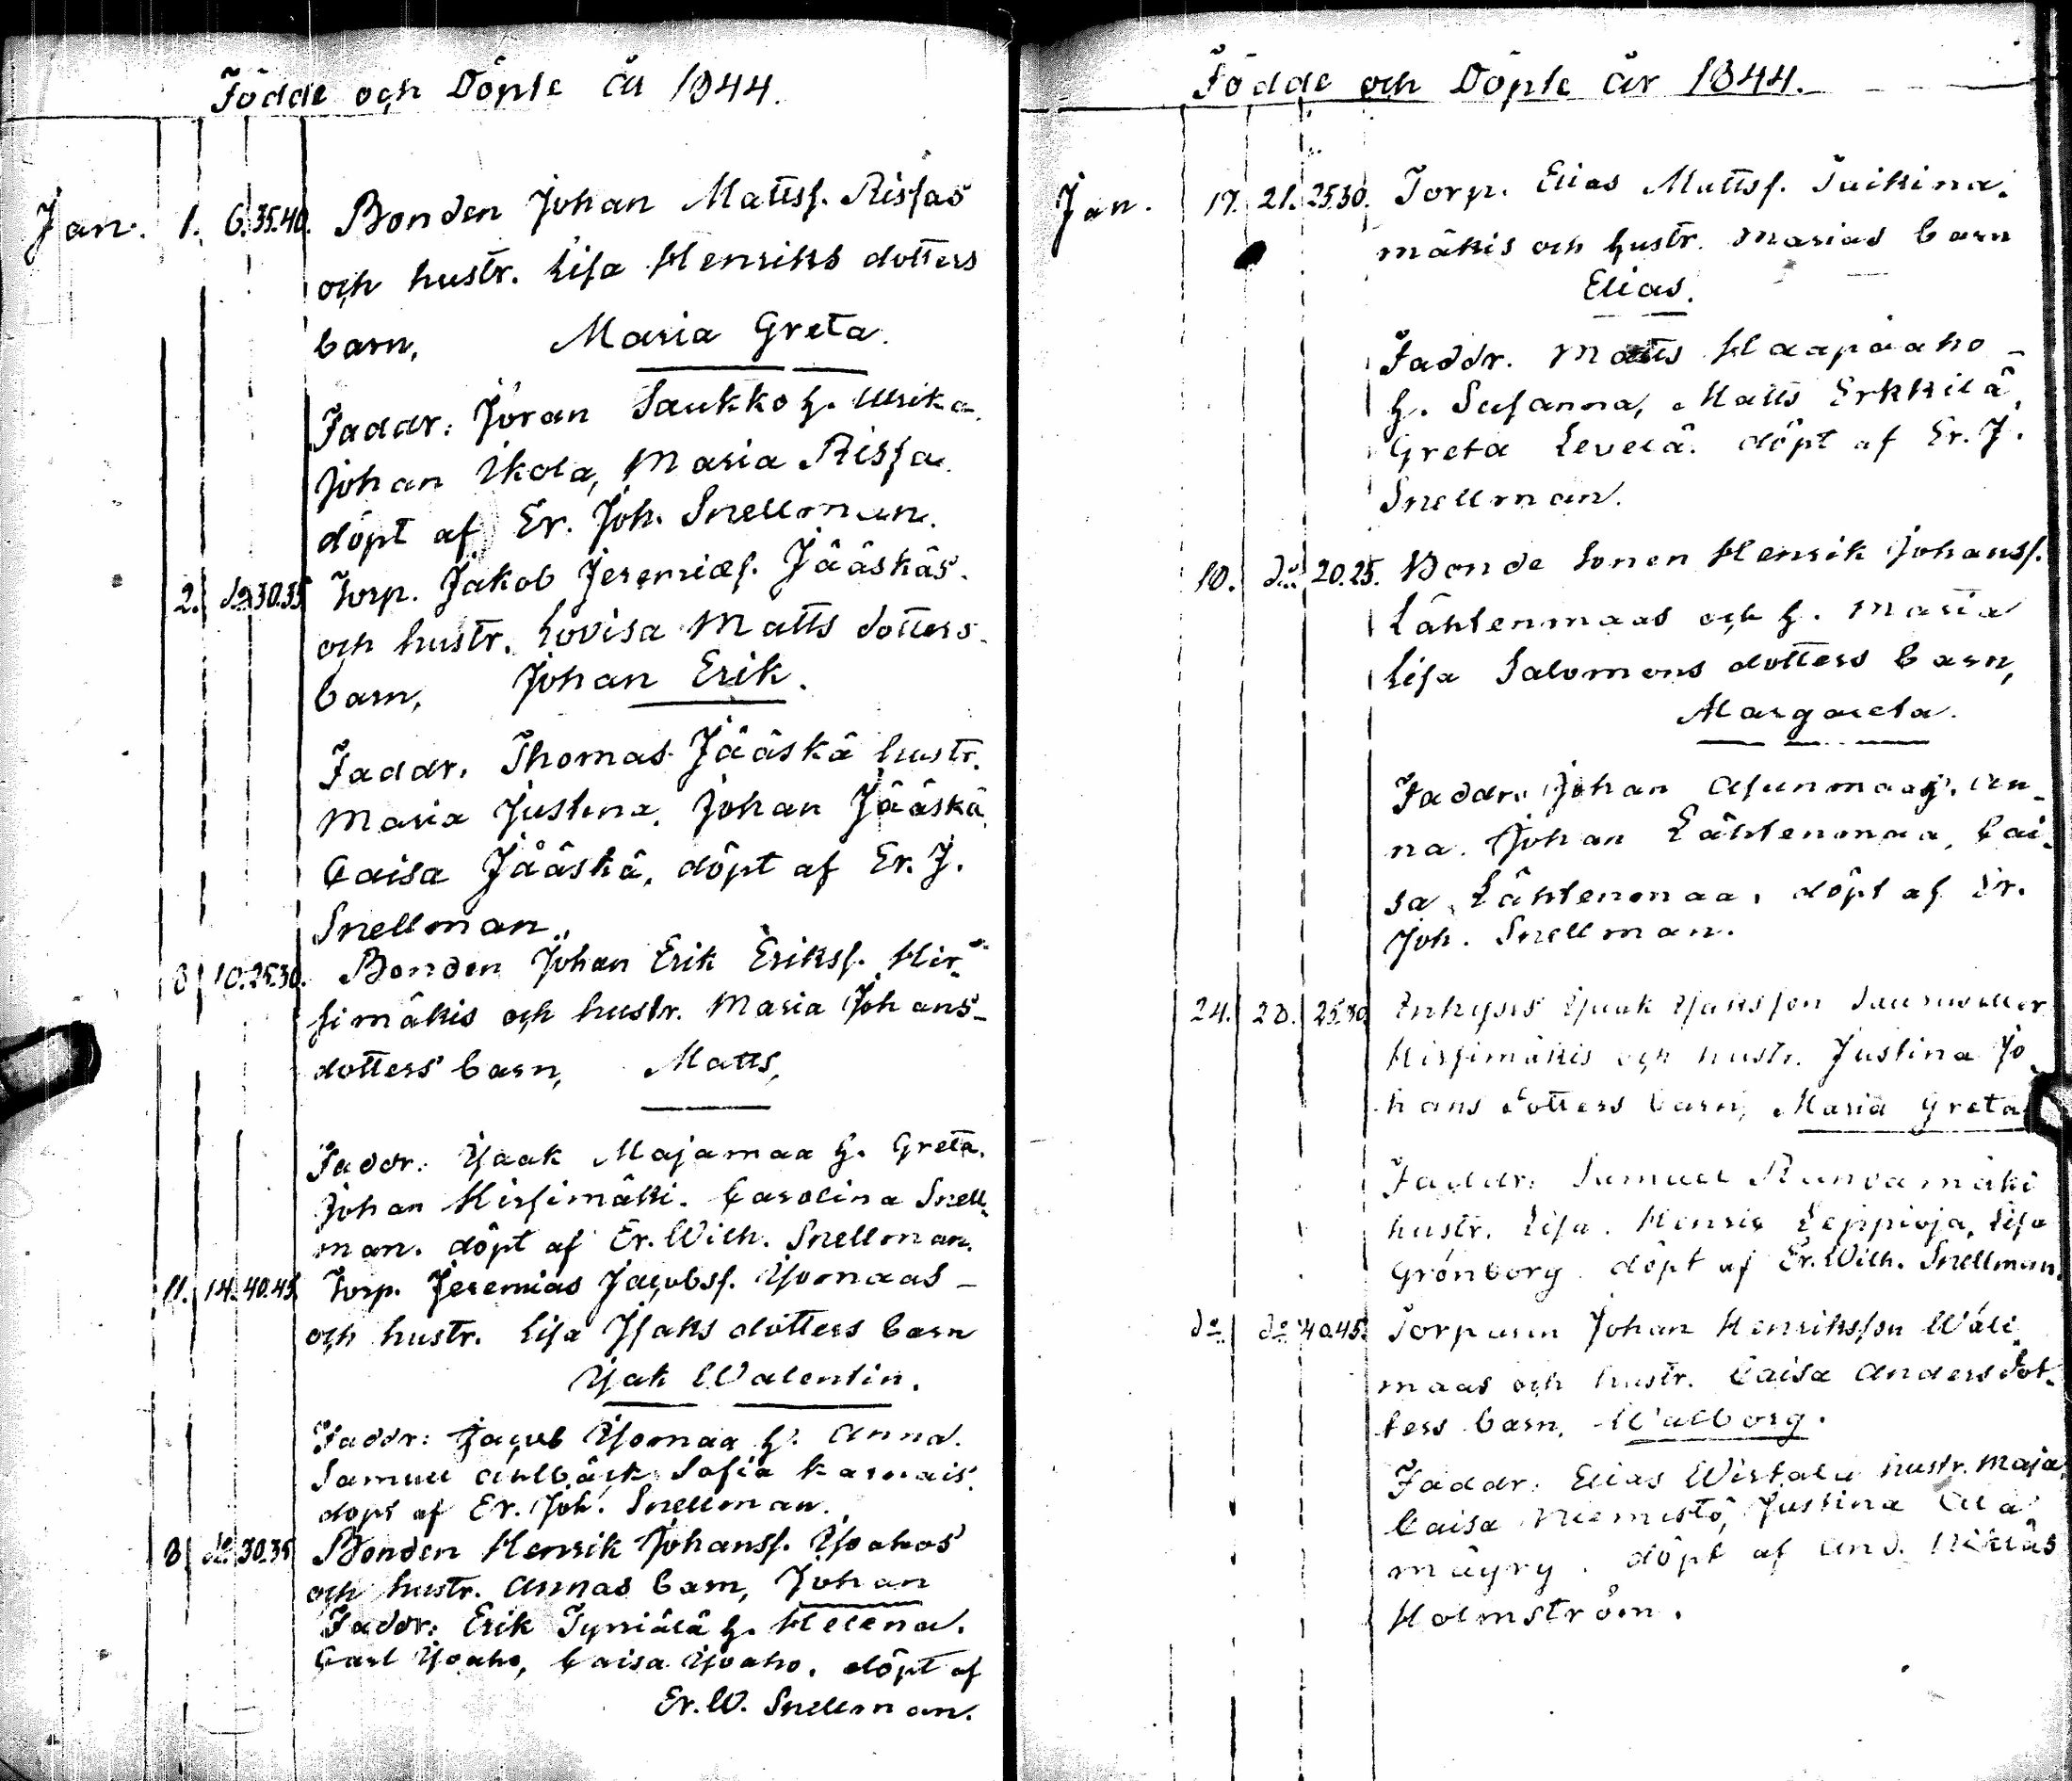 Födde och Döpte år 1844.
Jan. 1. 6. 35.40. Bonden Johan Mattsf. Rissas
och hustr. Lisa Henriks dotters
barn, Maria Greta.
Faddr: Jöran Saukko h. Ulrika.
Johan Ikola, Maria Rissa.
döpt af Er. Joh. Snellman.
2. do 30.35 Torp. Jakob Jeremiæs. Jääskäs
och hustr. Lovisa Matts dotters
barn, Johan Erik.
Faddr. Thomas Jääskä hustr.
Maria Justina. Johan Jääskä
Caisa Jääskä, döpt af Er. J.
Snellman.
8 10. 25.30. Bonden Johan Erik Eriksf. Hir-
simäkis och hustr. Maria Johans-
dotters barn, Matts,
Faddr: Isaak Majamaa h. Greta.
Johan Hirsimäki. Carolina Snell-
man. döpt af Er. Wilh. Snellman.
11. 14. 40.45. Torp. Jeremias Jacobsf. Isomaas
och hustr. Lisa Isaks dotters barn
Isak Walentin.
Faddr: Jacob Isomaa h. Anna.
Samuel Ahlbäck, Sofia
döpt af Er. Joh. Snellman.
8 do 30.35 Bonden Henrik Johansf. Isoahos
och hustr. Annas barn, Johan
Faddr: Erik Tyniälä h. Helena.
Carl Isoaho, Caisa Isoaho. döpt af
Er. W. Snellman.
Födde och Döpte år 1844.
Jan. 17. 21. 25.30. Torp. Elias Mattsf.
mäkis och hustr. Marias barn
Elias.
Faddr. Matts Haapaaho
h. Susanna, Matts Erkkilä,
Greta Levelä. döpt af Er. J.
Snellman.
10. do 20.25. Bonde Sonen Henrik Johansf.
Lähtenmaas och h. Maria
Lisa Salomons dotters barn,
Margareta.
Faddr. Johan Asunmaa h. An-
na. Johan Lähtenmaa, Cai-
sa Lähtenmaa. döpt af Er.
Joh. Snellman.
24. 28. 25.30. Inhyses Isaak Isaksson
Hirsimäkis och hustr. Justina Jo-
hans dotters barn, Maria Greta
Faddr: Samuel
hustr. Lisa. Henric Leppioja, Lisa
Grönborg. döpt af Er. Wilh. Snellman.
do do 40.45. Torparen Johan Henriksson Wäli-
maas och hustr. Caisa Anders dot-
ters barn, Walborg.
Faddr: Elias Wirtala hustr. Maja
Caisa Niemistö, Justina Ala
mäyry. döpt af And. Niklas
Holmström.